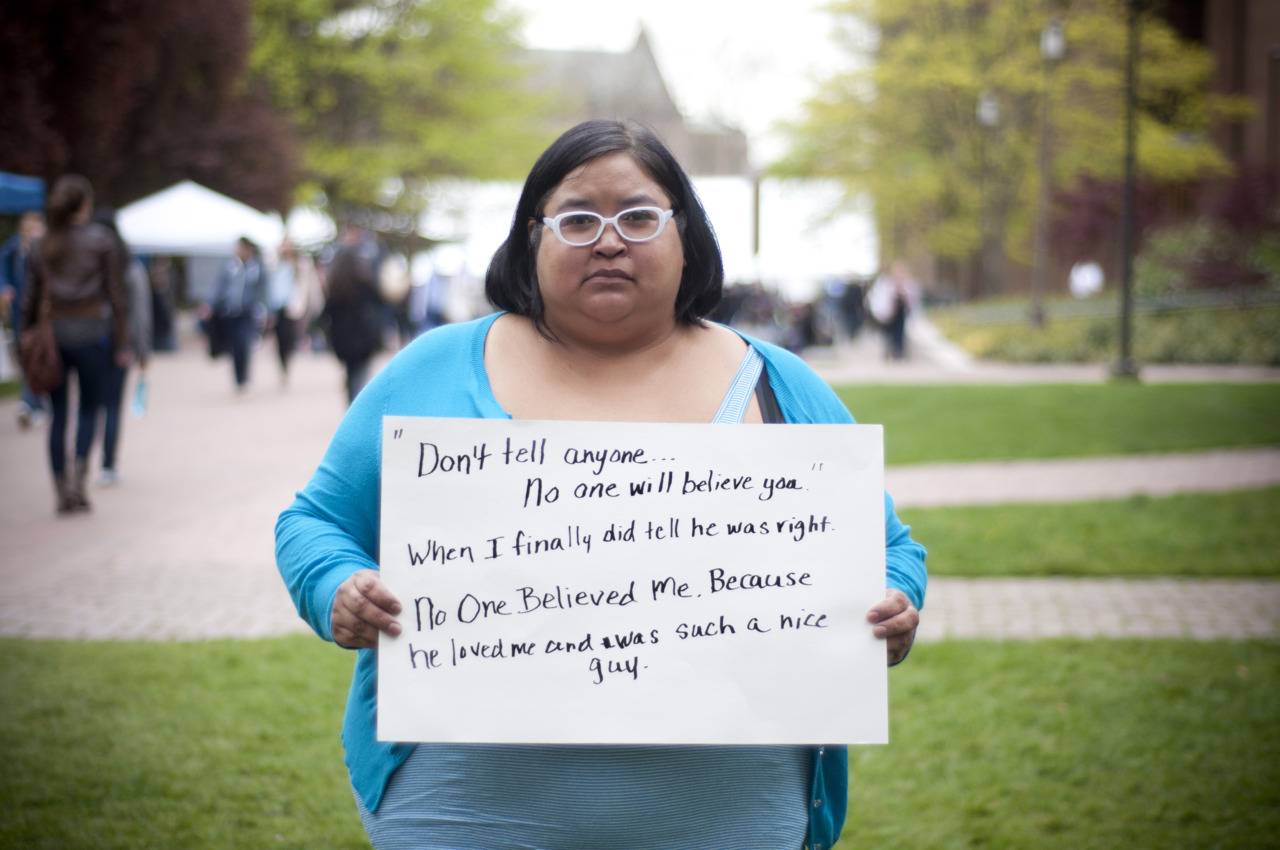 "Don't tell anyone...
No one will believe you."
When I finally did tell he was right.
No One Believed Me. Because
he loved me and was such a nice
guy.